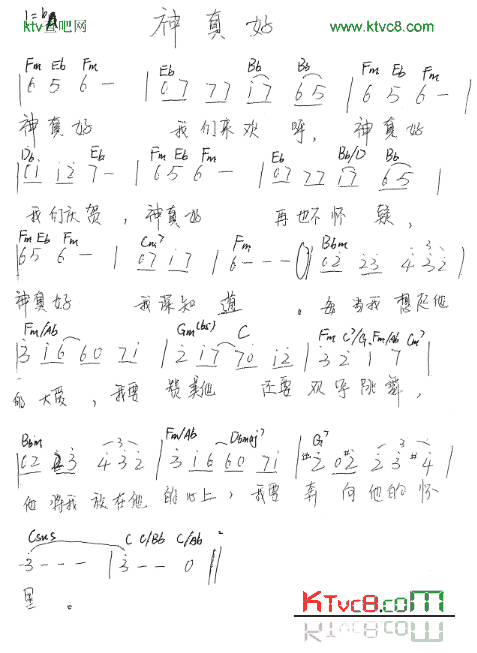 1=bA
ktv吧网
神真好
www.ktvc8.com
Fm Eb Fm Eb Bb Bb Fm Eb Fm
| 6 5 6 - | 0 7 7 7 i 7 6 5 | 6 5 6 - |
神真好 我们来欢呼, 神真好
Db Eb Fm Eb Fm Eb Bb/D Bb
| 0 i i 2 7 - | 6 5 6 - | 0 7 7 7 i 7 6 5 |
我们庆贺, 神真好 再也不怀疑,
Fm Eb Fm Cm7 Fm Bbm
| 6 5 6 - | 0 7 i 7 | 6 - - - | 0 2 2 3 4 3 2 |
神真好 我深知道。每当我想起他
Fm/Ab Gm(b5) C Fm C7/G Fm/Ab Cm7
| 3 i 6 6 0 7 i | 2 i 7 7 0 i 2 | 3 2 i 7 |
的大爱, 我要赞美他 还要双手跳舞,
Bbm Fm/Ab Dbmaj7 G7
| 0 2 2 3 4 3 2 | 3 i 6 6 0 7 i | #2 0 #2 2 3 #4 |
他将我放在他的心上, 我要奔向他的怀
Csus C C/Bb C/Ab
3 - - - | 3 - - 0 ||
里。
KTvc8.com